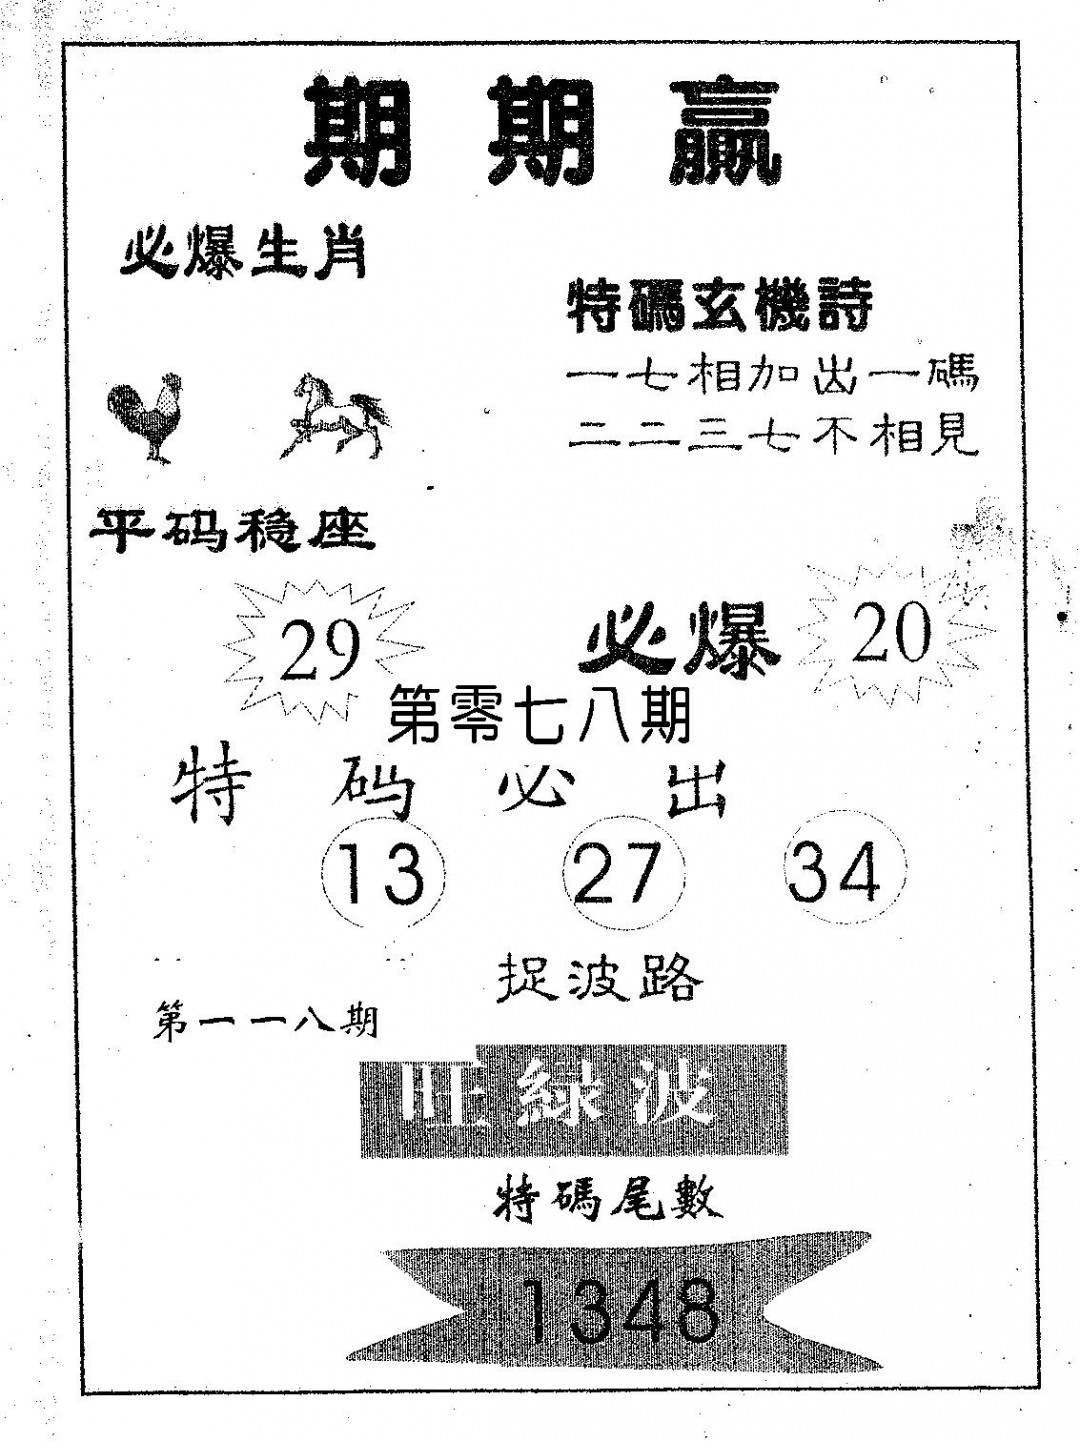 期期贏
必爆生肖
特碼玄機詩
一七相加出一碼
二二三七不相見
平码稳座
29
必爆
20
第零七八期
特码必出
13 27 34
捉波路
第一一八期
旺綠波
特碼尾數
1348